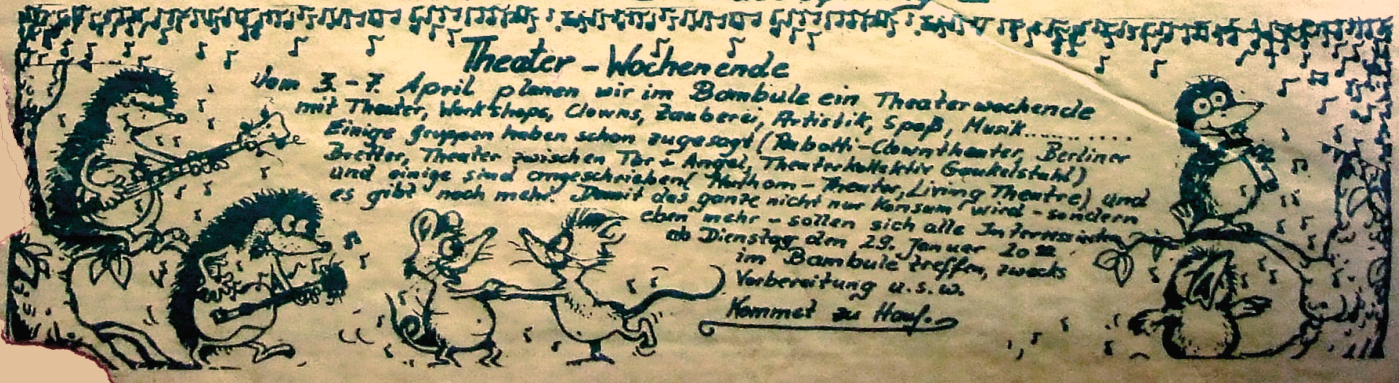 Theater - Wochenende
Vom 3. - 7. April planen wir im Bambule ein Theaterwochende
mit Theater, Workshops, Clowns, Zauberei, Artistik, Spaß, Musik...........
Einige gruppen haben schon zugesagt (Clowntheater, Berliner
Bretter, Theater zwischen Tür + Angel, Theaterkollektiv Gaukelstuhl)
und einige sind angeschrieben( - Theater, Living Theatre) und
es gibt noch mehr. Damit das ganze nicht nur Konsum wird - sondern
eben mehr - sollen sich alle
ab Dienstag dem 29. Januar 20
im Bambule treffen, zwecks
Vorbereitung u.s.w.
Kommet zu Hauf.